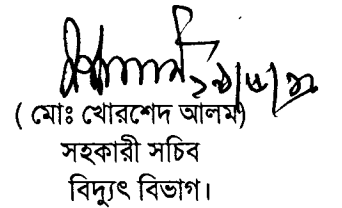 ( মোঃ খোরশেদ আলম)
সহকারী সচিব
বিদ্যুৎ বিভাগ।